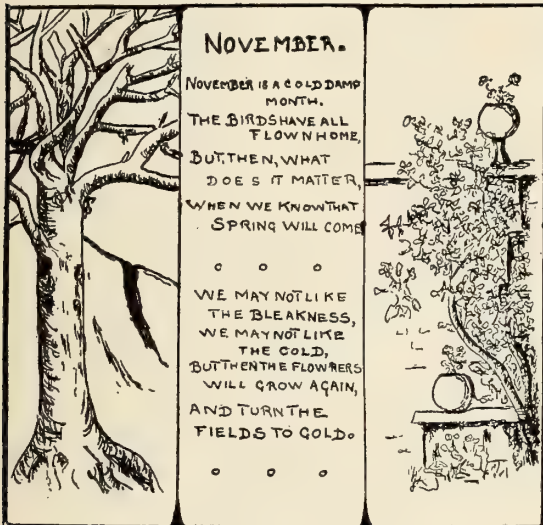 NOVEMBER.
NOVEMBER IS A COLD DAMP
MONTH.
THE BIRDS HAVE ALL
FLOWN HOME,
BUT, THEN, WHAT
DOES IT MATTER,
WHEN WE KNOW THAT
SPRING WILL COME
WE MAY NOT LIKE
THE BLEAKNESS,
WE MAY NOT LIKE
THE COLD,
BUT THEN THE FLOWRERS
WILL GROW AGAIN,
AND TURN THE
FIELDS TO GOLD.